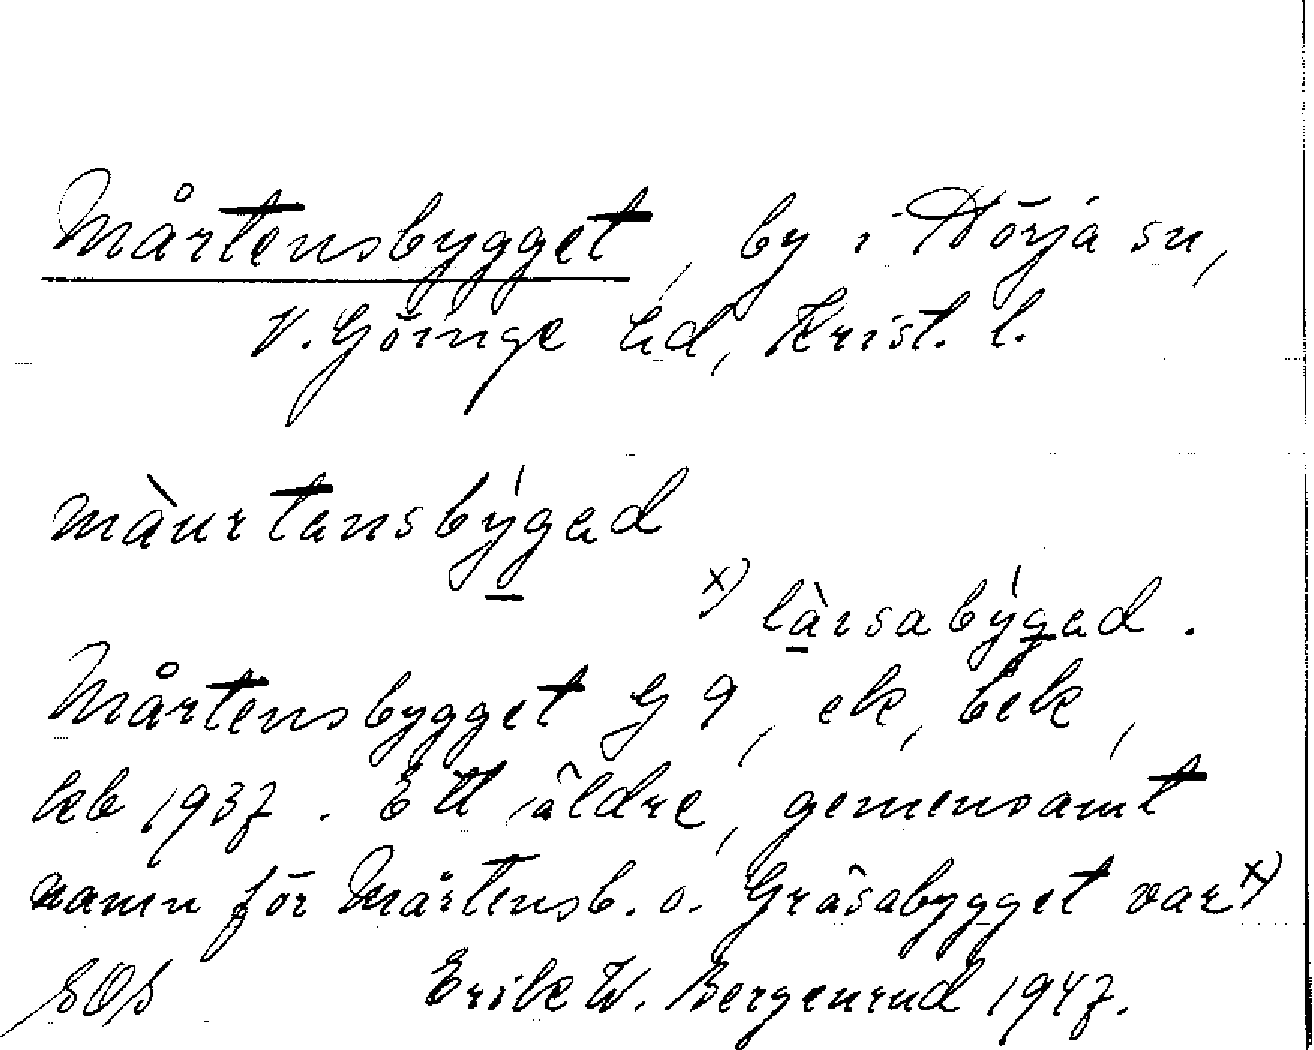 Mårtensbygget, by i Nörja sn,
V. Göinge hd, Krist. l.
màurtansbýgad
x) làrsabýgad.
Mårtensbygget G 9, ek, bek,
hkb 1937. Ett äldre, gemensamt
namn för Mårtensb. o. Gråsabygget var x)
SOS Erik W. Bergenrud 1947.